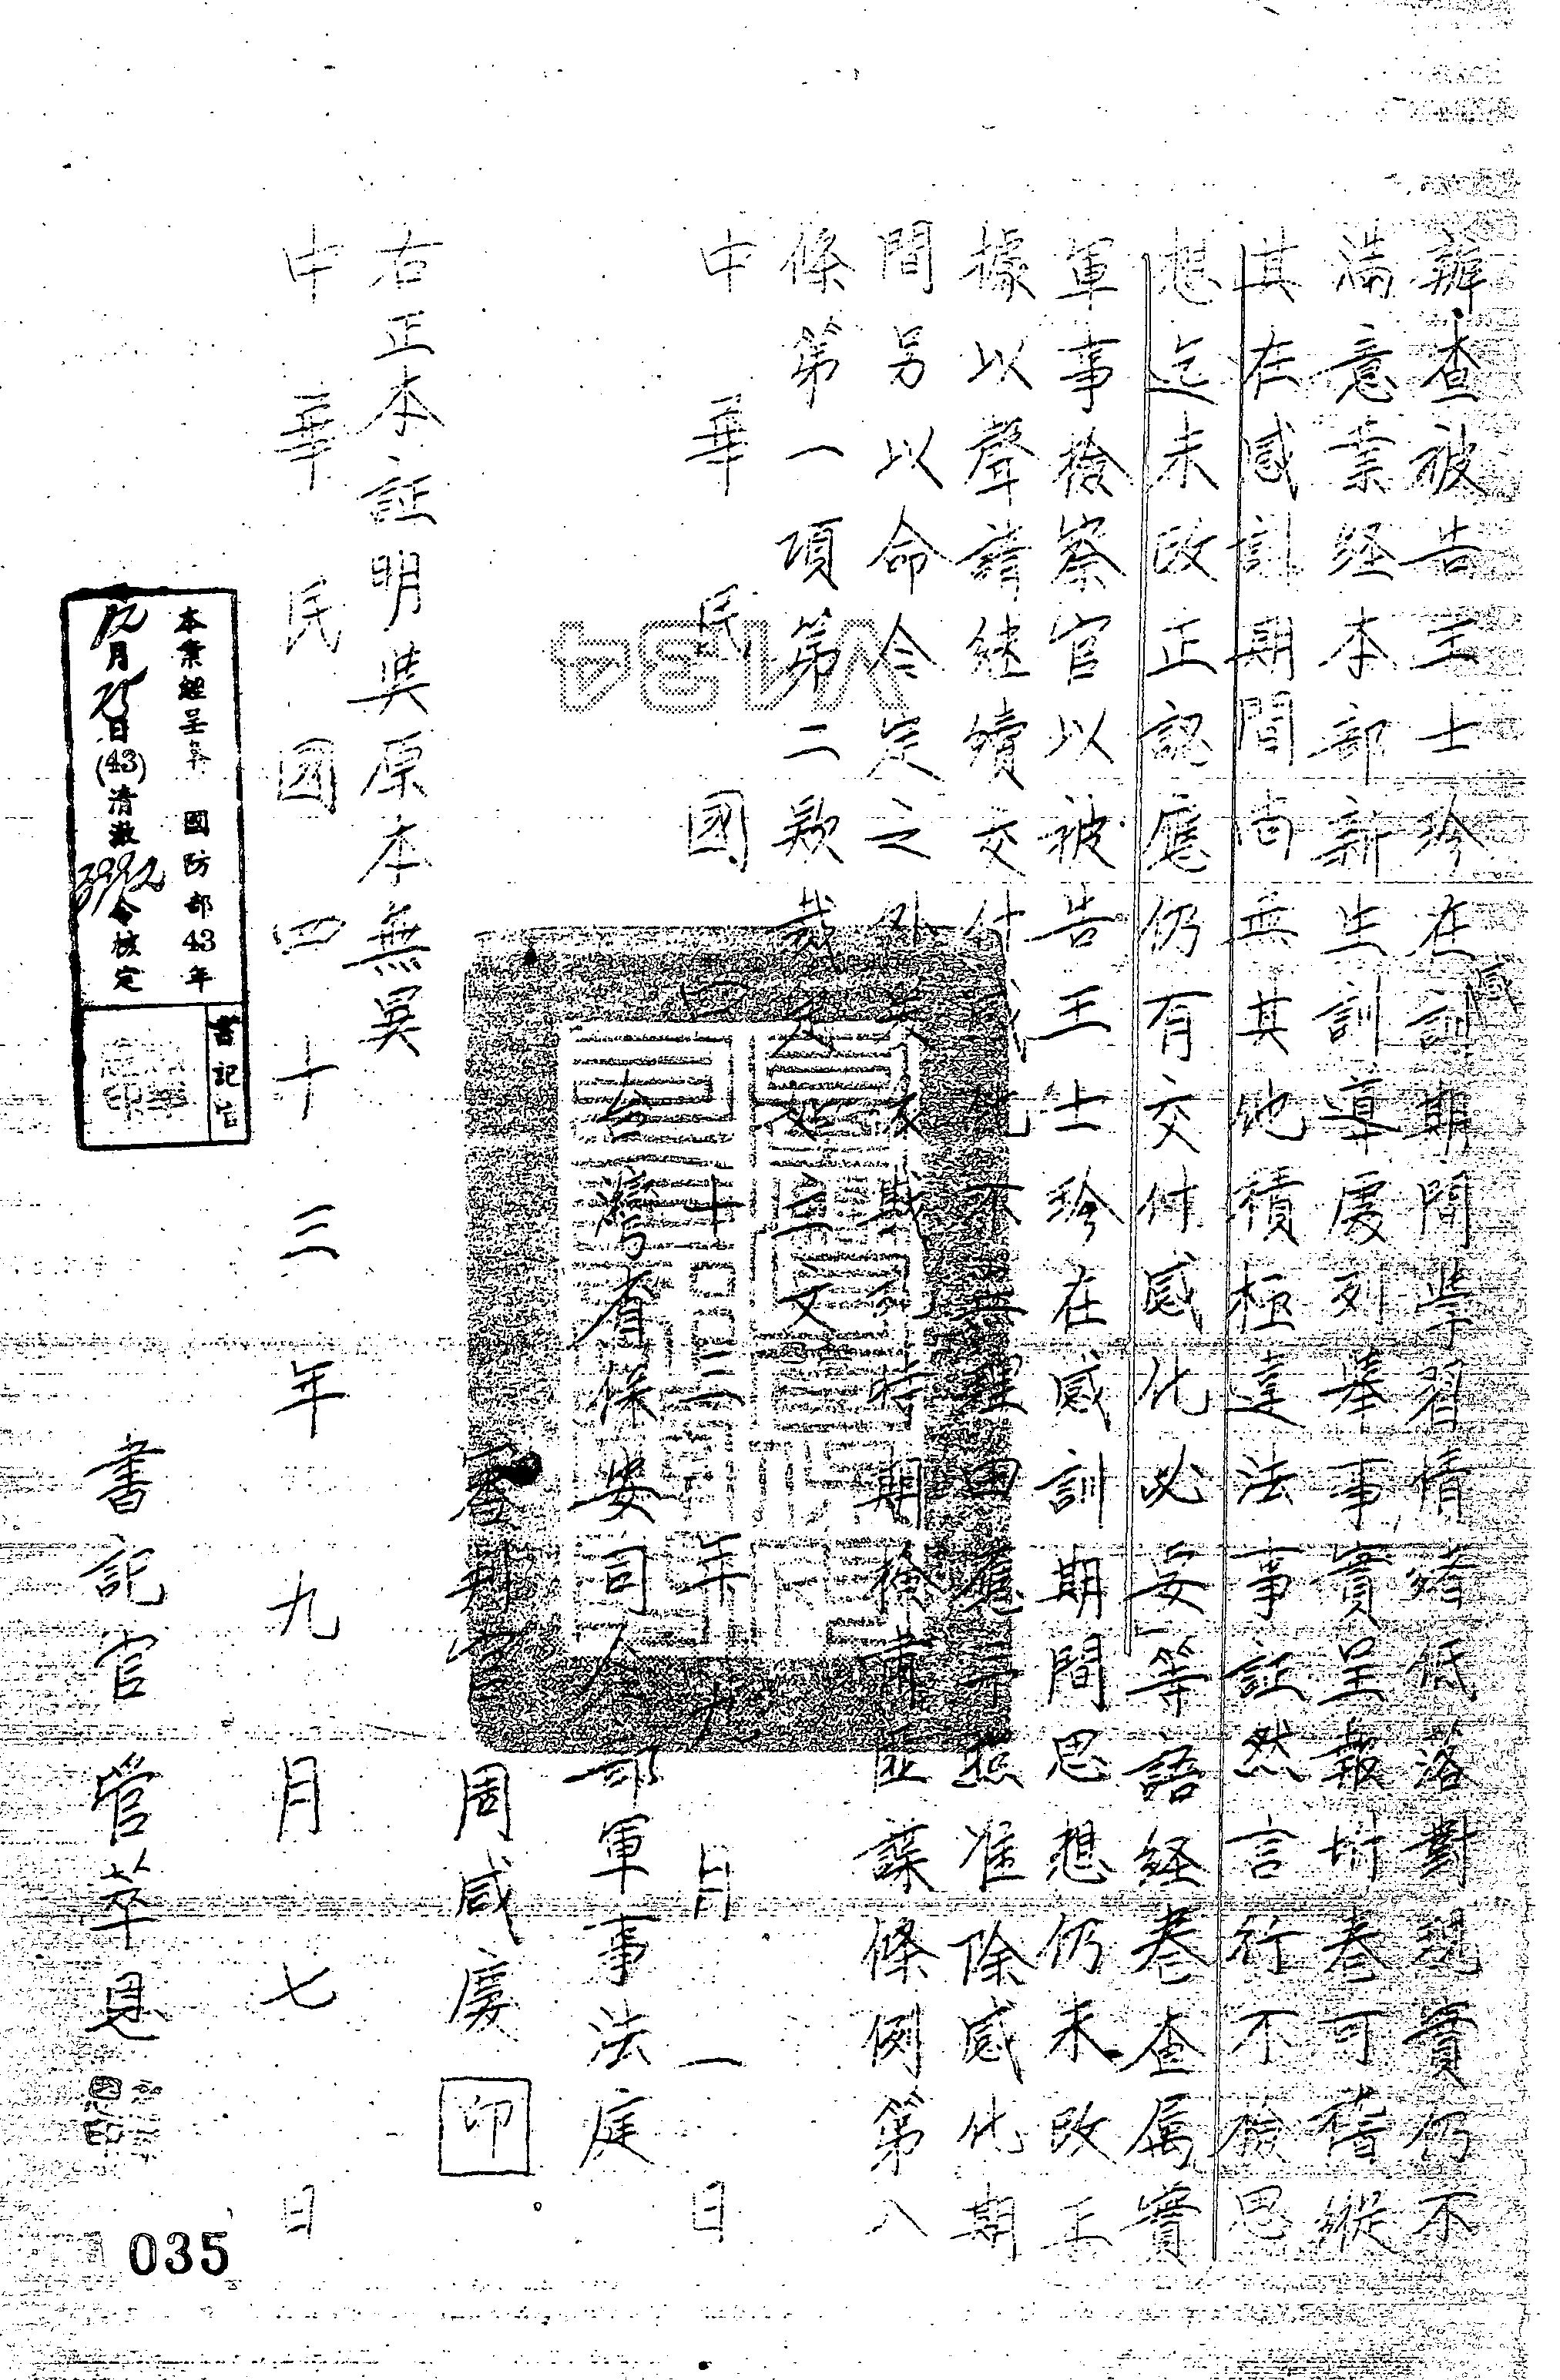 辦查被告王士珍在感訓期間學習情緒低落對現實仍不
滿意業経本部新生訓導處列舉事實呈報坿卷可稽縱
其在感訓期間尚無其他積極違法事証然言行不檢思
想迄未改正認應仍有交付感化必要等語経卷查属實
軍事檢察官以被告王士珍在感訓期間思想仍未改正
據以聲請継續交付感化不無理由應予照准除感化期
間另以命令定之外依戡乱時期檢肅匪諜條例第八
條第一項第二款裁定如主文
中華民國四十三年九月一日
台灣省保安司令部軍事法庭
審判官周咸慶
印
右正本証明與原本無異
中華民國四十三年九月七日
書記官管萃恩
本案經呈奉國防部43年
12月25日(43)清澈3992令核定
書記官
V134
035